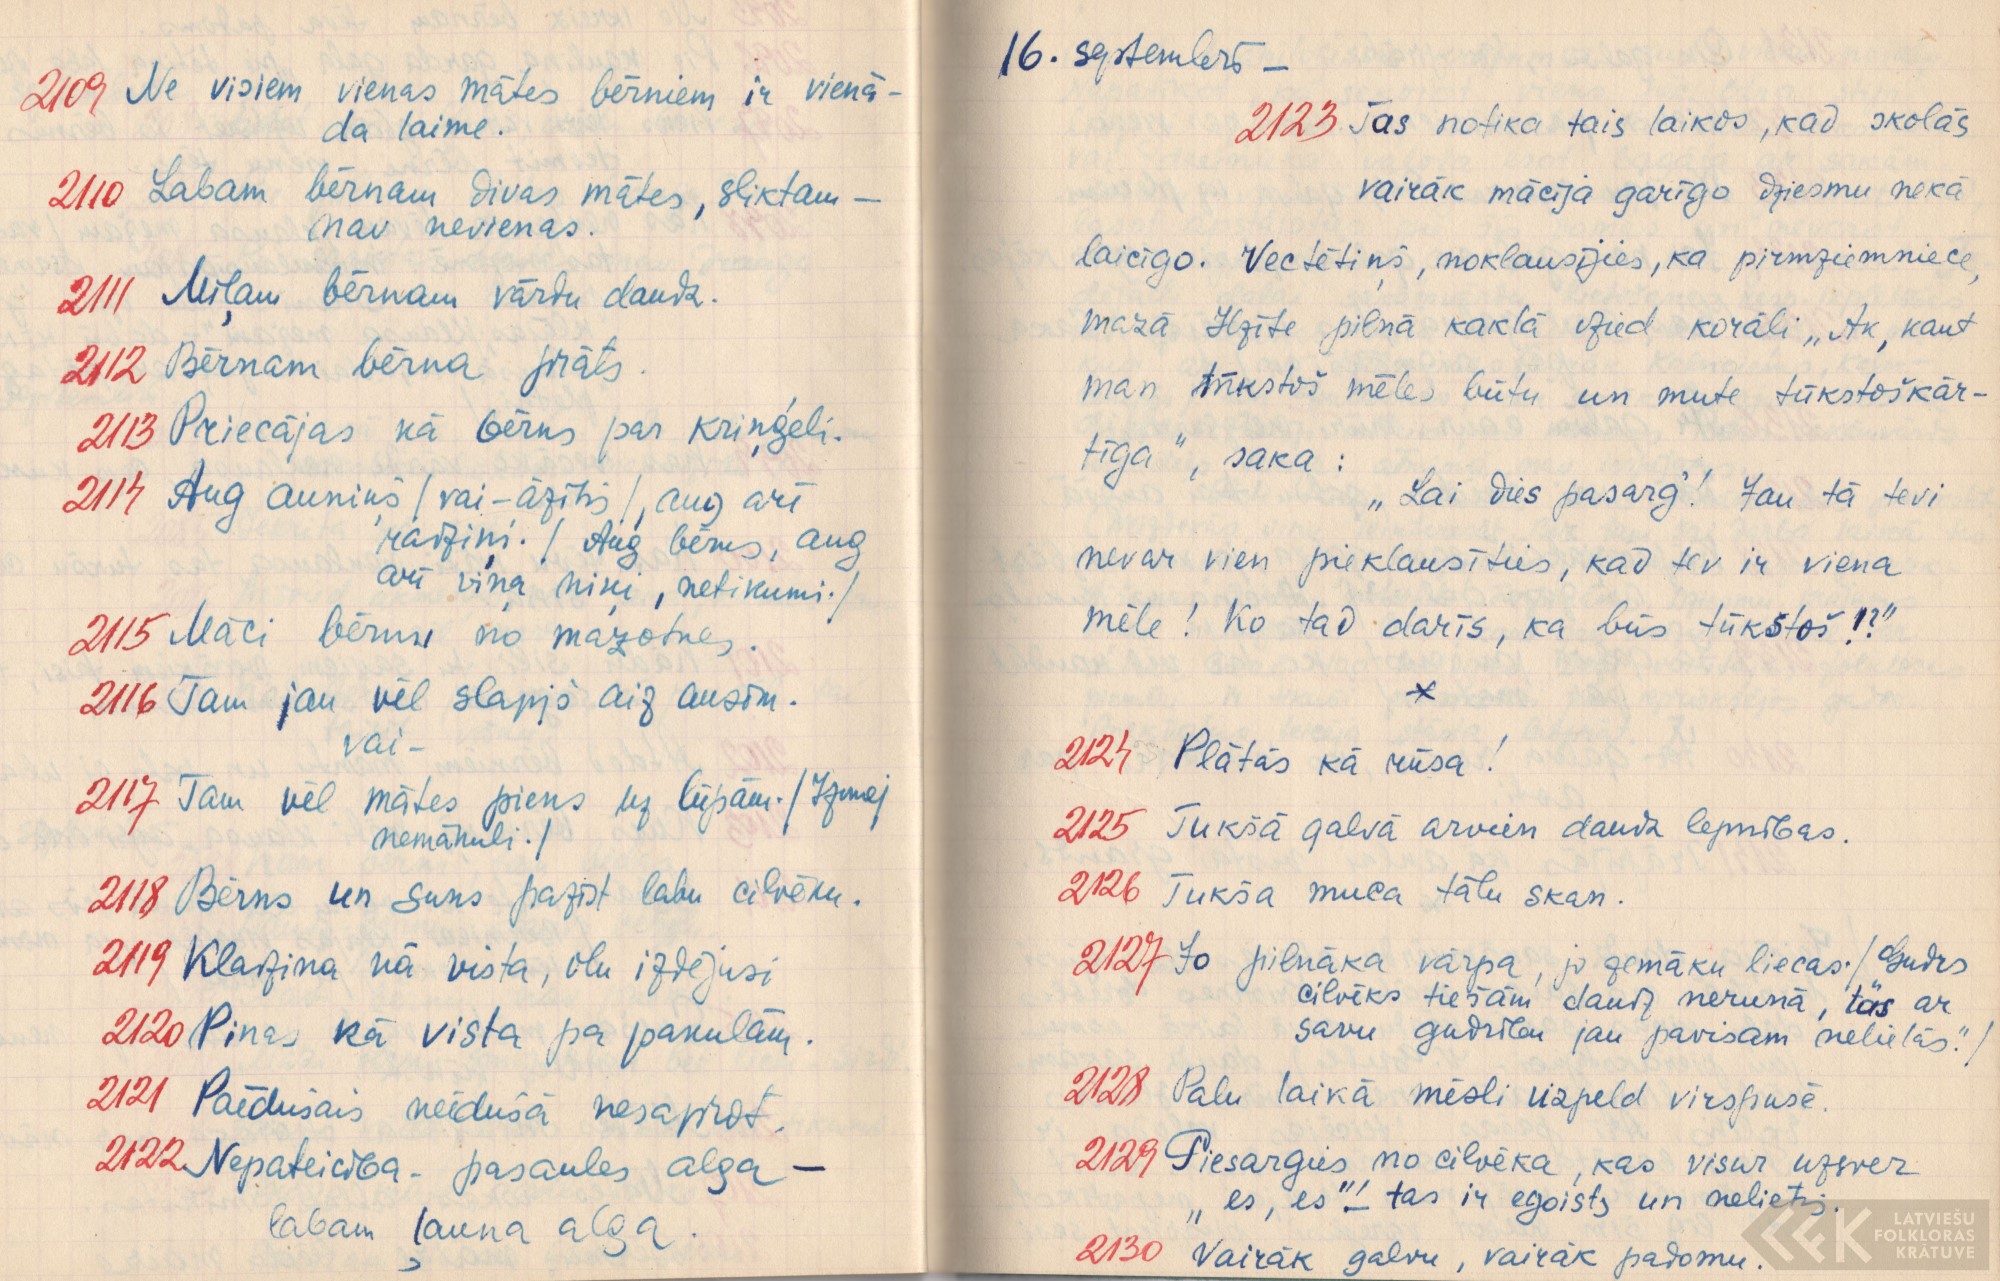 2109 Ne visiem vienas mātes bērniem ir vienā-
da laime.
2110 Labam bērnam divas mātes, sliktam –
nav nevienas.
2111 Mīļam bērnam vārdu daudz.
2112 Bērnam bērna prāts.
2113 Priecājas kā bērns par kriņģeli.
2114 Aug auniņš / vai – āzītis /, aug arī
radziņi. / Aug bērns, aug
arī viņa niķi, netikumi. /
2115 Māci bērnu no mazotnes.
2116 Tam jau vēl slapjš aiz ausīm.
vai –
2117 Tam vēl mātes piens uz lūpām. / Izsmej
nemākuli. /
2118 Bērns un suns pazīst labu cilvēku.
2119 Kladzina kā vista, olu izdējusi
2120 Pinas kā vista pa pakulām.
2121 Paēdušais neēdušā nesaprot.
2122 Nepateicība – pasaules alga –
labam ļauna alga.
16. septembrīs –
2123 Tas notika tais laikos, kad skolās
vairāk mācīja garīgo dziesmu nekā
laicīgo. Vectētiņš, noklausījies, ka pirmziemniece,
mazā Ilzīte pilnā kaklā dzied korāli „Ak, kaut
man tūkstoš mēles būtu un mute tūkstoškār-
tīga", saka:
„Lai dies pasarg'! Jau tā tevi
nevar vien pieklausīties, kad tev ir viena
mēle! Ko tad darīs, ka būs tūkstoš!?"
*
2124 Plātās kā rūsa!
2125 Tukšā galvā arvien daudz lepnības.
2126 Tukša muca tālu skan.
2127 Jo pilnāka vārpa, jo zemāku liecas. / Gudrs
cilvēks tiešām daudz nerunā, tas ar
savu gudrību jau pavisam nelielās." /
2128 Palu laikā mēsli uzpeld virspusē.
2129 Piesargies no cilvēka, kas visur uzsver
„es, es"! – tas ir egoists un nelietis.
2130 Vairāk galvu, vairāk padomu.
LATVIEŠU
FOLKLORAS
KRĀTUVE